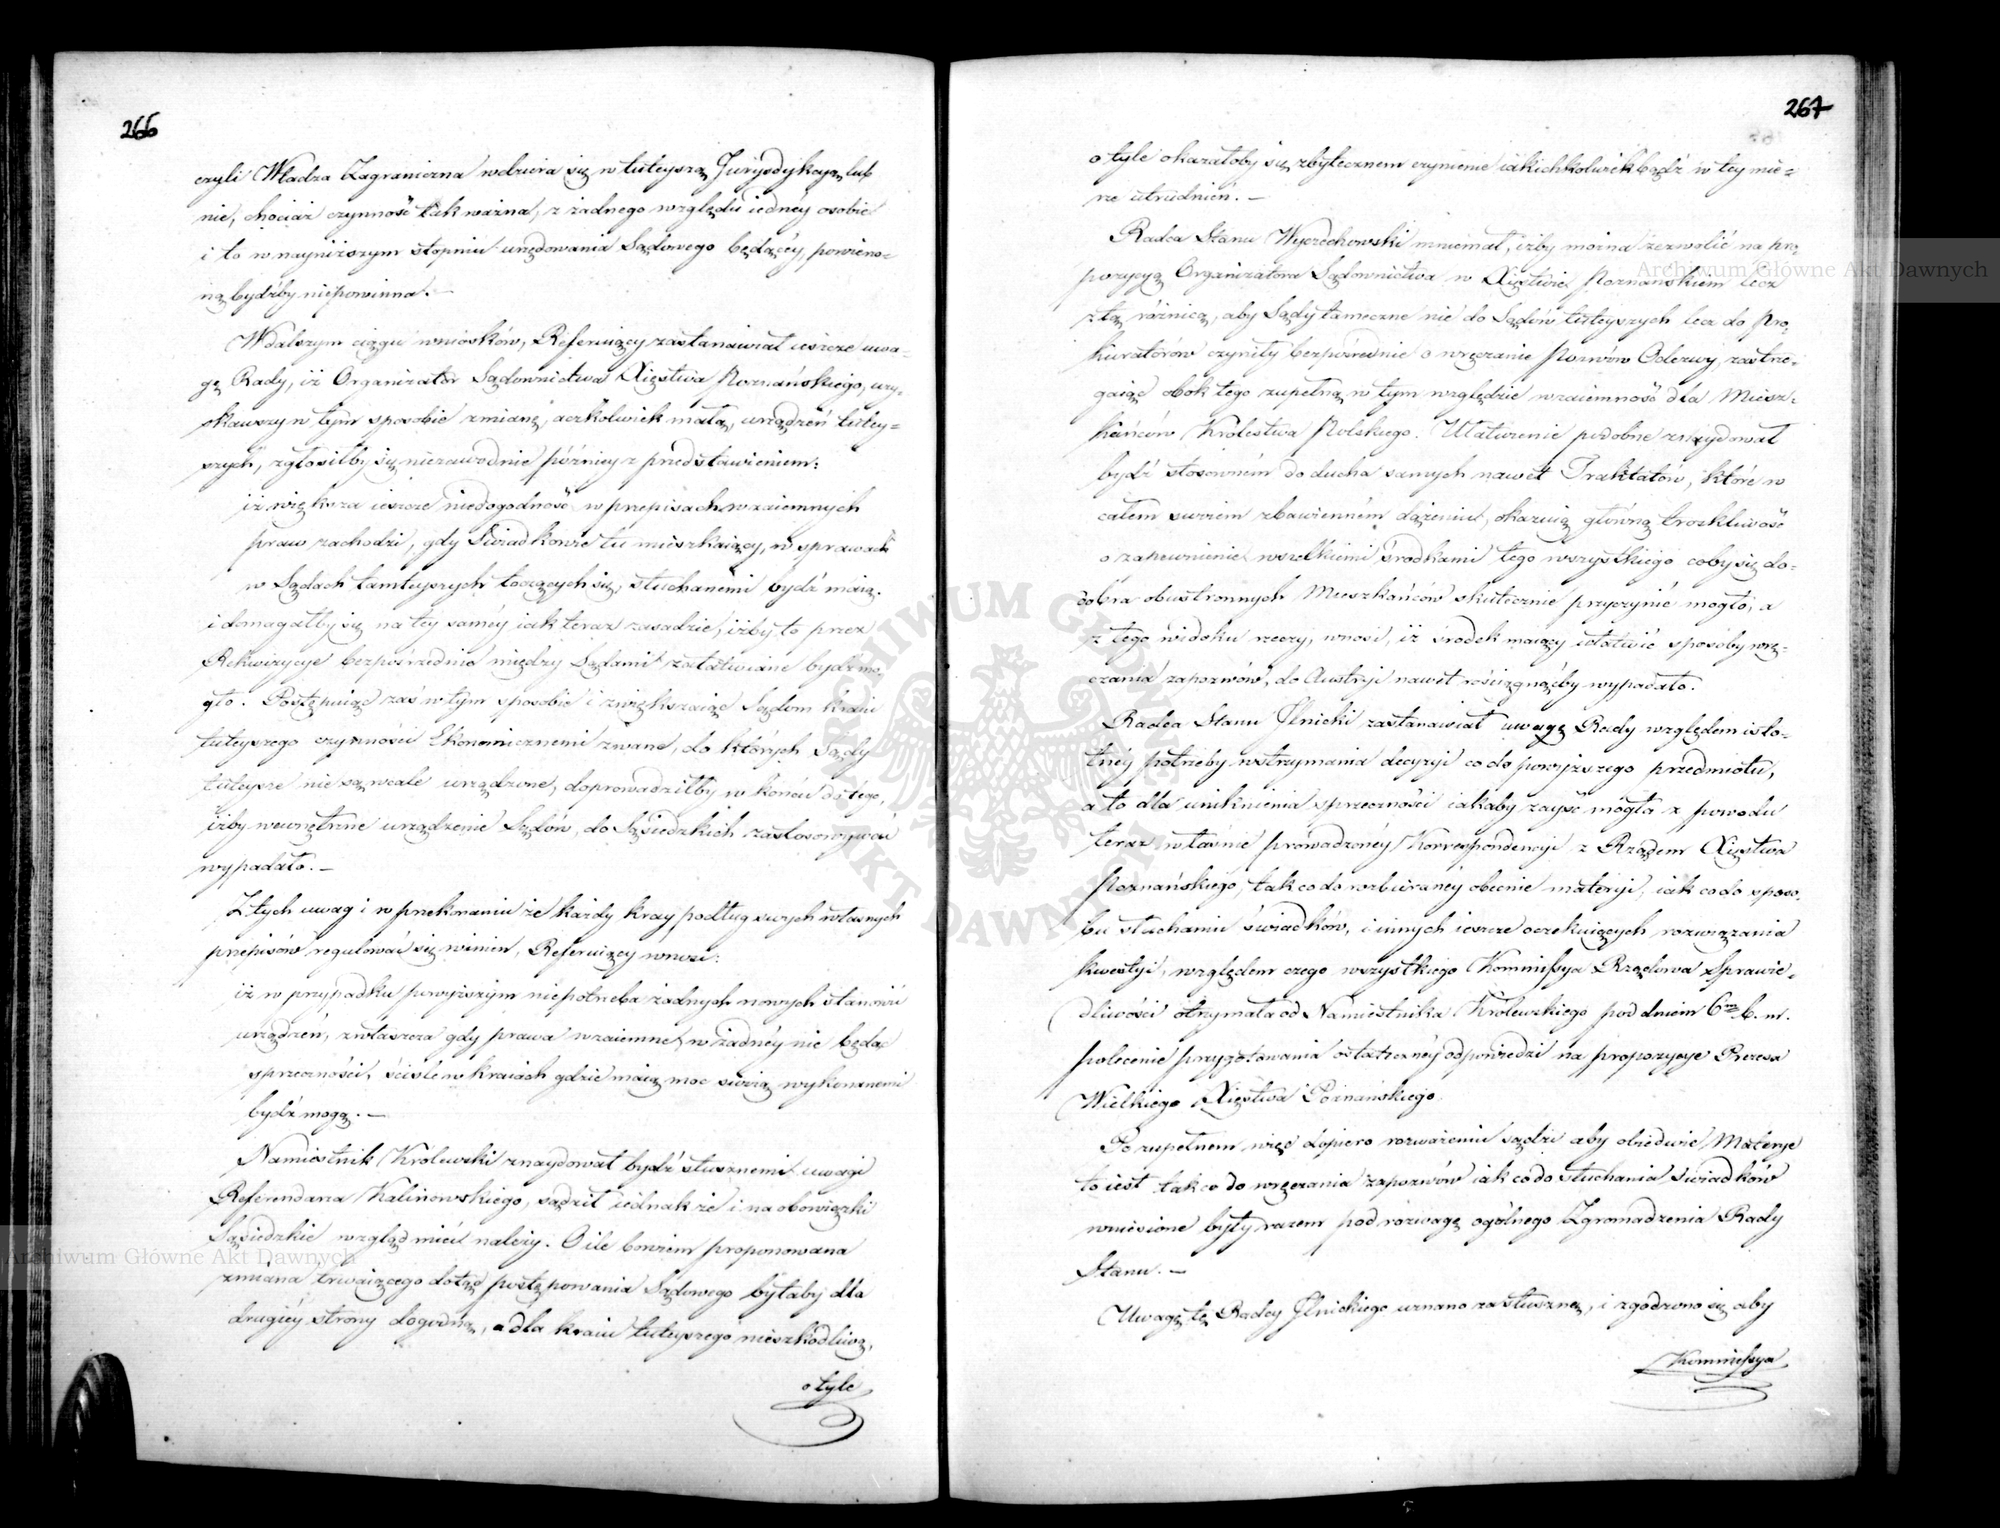 266
czyli Władza Zagraniczna wdziera się w tuteyszą Jurysdykcyą lub
nie, chociaż czynność tak ważna, z żadnego względu iednéy osobie
i to w nayniższym stopniu urzędowania Sądowego będącéy, powierzo=
ną bydźby niepowinna. –
W dalszym ciągu wniosków, Referuiący zastanawiał ieszcze uwa=
gę Rady, iż Organizator Sądownictwa Xięstwa Poznańskiego, uzy=
skawszy w tym sposobie zmianę, aczkolwiek małą, urządzeń tutey=
szych, zgłosiłby się niezawodnie późniey z przedstawieniem:
iż większa ieszcze niedogodność w przepisach wzaiemnych
praw zachodzi, gdy Świadkowie tu mieszkaiący, w sprawach
w Sądach tamteyszych toczących się, słuchanemi bydź maią.
i domagałby się na tey saméy iak teraz zasadzie, iżby to przez
Rekwizycye bezpośrednio między Sądami załatwiane bydź mo=
gło. Postępuiąc zaś w tym sposobie i zwiększaiąc Sądom kraiu
tuteyszego czynności Ekonomicznemi zwane, do których Sądy
tuteysze nie są wcale urządzone, doprowadziłby w końcu do tego,
iżby wewnętrzne urządzenie Sądów, do Sąsiedzkich zastosowywać
wypadało. –
Z tych uwag i w przekonaniu że każdy kray podług swych własnych
przepisów regulować się winien, Referuiący wnosi:
iż w przypadku powyższym niepotrzeba żadnych nowych stanowić
urządzeń, zwłaszcza gdy prawa wzaiemne, w żadnéy nie będąc
sprzeczności, ściśle w kraiach gdzie maią moc swoią wykonanemi
bydź mogą. –
Namiestnik Królewski znaydował bydź słusznemi uwagi
Referendarza Kalinowskiego, sądził iednakże i na obowiązki
Sąsiedzkie wzgląd mieć należy. O ile bowiem proponowana
zmiana trwaiącego dotąd postępowania Sądowego byłaby dla
drugiéy strony dogodną, a dla kraiu tuteyszego nieszkodliwą,
o tyle
267
o tyle okazałoby się zbytecznem czynienie iakichkolwiek bądź w tey mie=
rze utrudnień. –
Radca Stanu Wyczechowski mniemał, iżby można zezwolić na pro=
pozycyą Organizatora Sądownictwa w Xięstwie Poznańskiem lecz
z tą różnicą, aby Sądy tameczne nie do Sądów tuteyszych lecz do Pro=
kuratorów czyniły bezpośrednie o wręczanie Pozwów Odezwy, zastrze=
gaiąc obok tego zupełną w tym względzie wzaiemność dla Miesz=
kańców Królestwa Polskiego. Ułatwienie podobne znaydował
bydź stosowném do ducha samych nawet Traktatów, które w
całem swoiem zbawienném dążeniu, okazuią główną troskliwość
o zapewnienie wszelkiemi środkami tego wszystkiego coby się do=
dobra obustronnych Mieszkańców skutecznie przyczynić mogło, a
z tego widoku rzeczy, wnosi, iż środek maiący ułatwić sposoby wrę=
czania zapozwów, do Austryi nawet rościągnąćby wypadało.
Radca Stanu Ilnicki zastanawiał uwagę Rady względem isto=
tnéy potrzeby wstrzymania decyzyi co do powyższego przedmiotu,
a to dla uniknienia sprzeczności iakaby zayść mogła z powodu
teraz właśnie prowadzonéy Korrespondencyi z Rządem Xięstwa
Poznańskiego, tak co do rozbieranéy obecnie materyi, iak co do sposo=
bu słuchania świadków, i innych ieszcze oczekuiących rozwiązania
kwestyi, względem czego wszystkiego Kommissya Rządowa Sprawie=
dliwości otrzymała od Namiestnika Królewskiego pod dniem 6m b. m.
polecenie przygotowania ostatecznéy odpowiedzi na propozycye Prezesa
Wielkiego Xięstwa Poznańskiego.
Po zupełnem więc dopiero rozważeniu sądzi aby obiedwie Materye
to iest tak co do wręczania zapozwów iak co do słuchania Świadków
wniesione były razem pod rozwagę ogólnego Zgromadzenia Rady
Stanu. –
Uwagę tę Radcy Ilnickiego uznano za słuszną, i zgodzono się aby
Kommissya
Archiwum Główne Akt Dawnych
Archiwum Główne Akt Dawnych
ARCHIWUM GŁÓWNE AKT DAWNYCH